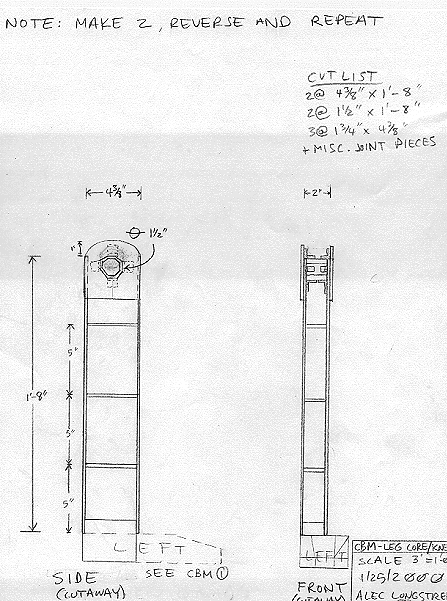 NOTE: MAKE 2, REVERSE AND REPEAT
CUT LIST
2@ 4 3/8" x 1'-8"
2@ 1 1/2" x 1'-8"
3@ 1 3/4" x 4 3/8"
+ MISC. JOINT PIECES
4 3/8"
2"
1 1/2"
1"
5"
1'-8"
5"
5"
LEFT
LEFT
SEE CBM 1
SIDE
(CUTAWAY)
FRONT
(CUTAWAY)
CBM-LEG CORE/KNE
SCALE 3"=1'-0
1/25/2000
ALEC LONGSTRE